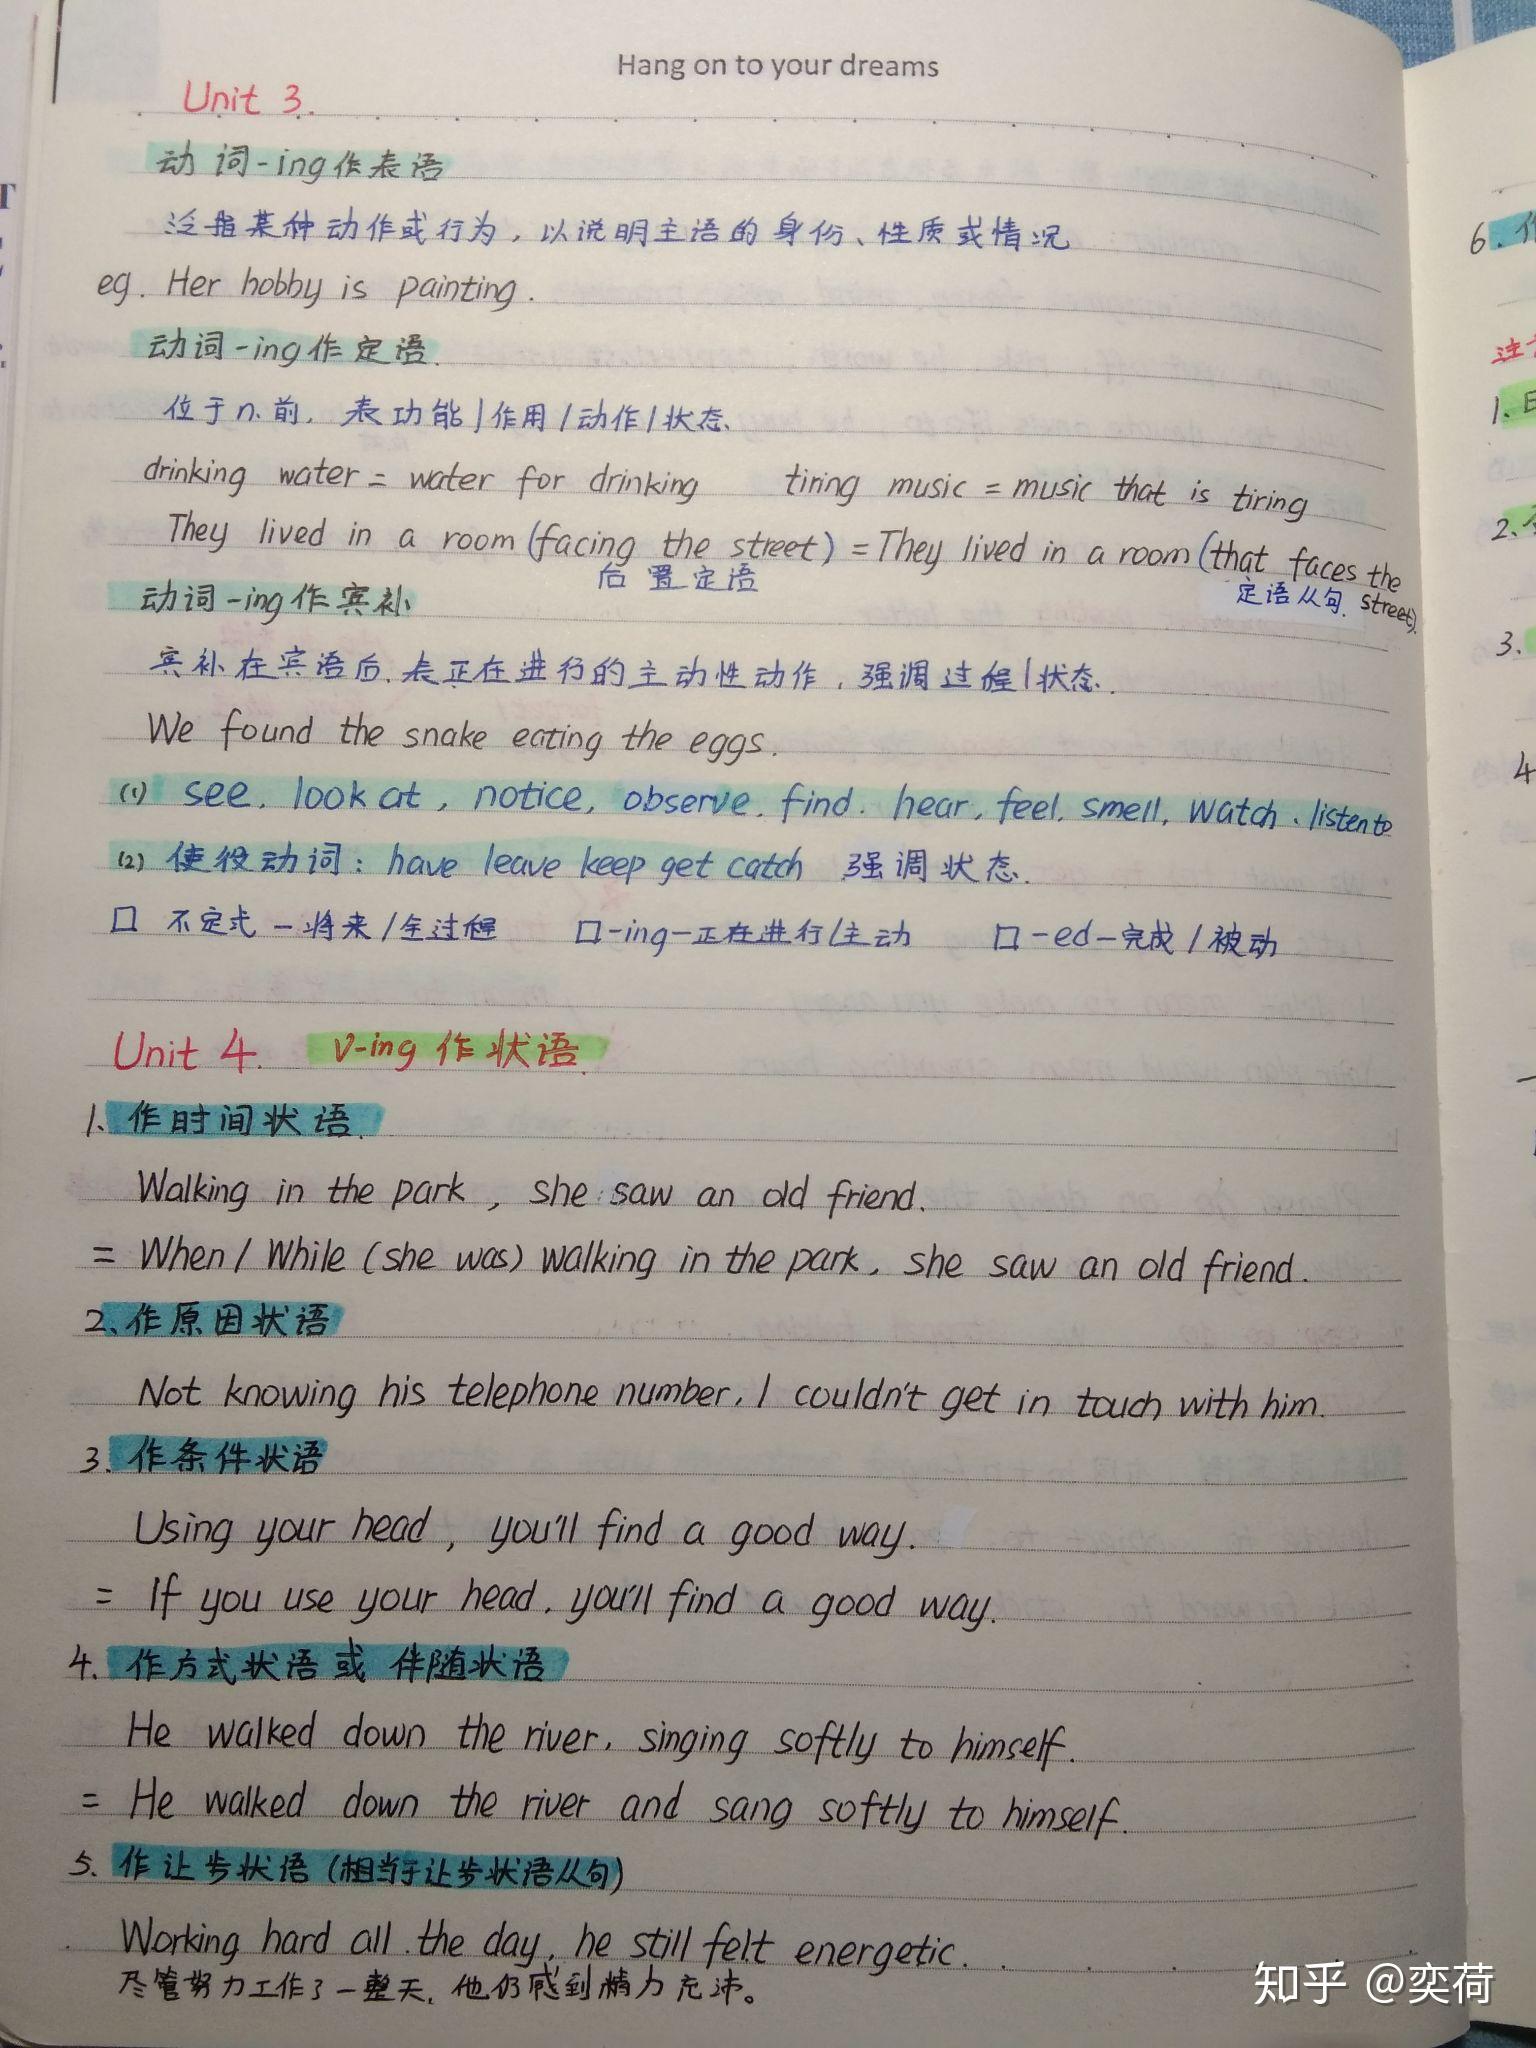 Hang on to your dreams
Unit 3.
动词-ing作表语
泛指某种动作或行为，以说明主语的身份、性质或情况
eg. Her hobby is painting.
动词-ing作定语.
位于n.前，表功能/作用/动作/状态.
drinking water = water for drinking tiring music = music that is tiring
They lived in a room (facing the street) = They lived in a room (that faces the street).
后置定语 定语从句.
动词-ing作宾补
宾补在宾语后.表正在进行的主动性动作，强调过程/状态.
We found the snake eating the eggs.
(1) see, look at, notice, observe, find. hear, feel, smell, watch, listen to
(2) 使役动词: have leave keep get catch 强调状态.
口 不定式-将来/全过程 口-ing-正在进行/主动 口-ed-完成/被动
Unit 4. V-ing 作状语.
1. 作时间状语.
Walking in the park, she saw an old friend.
= When / While (she was) walking in the park, she saw an old friend.
2. 作原因状语
Not knowing his telephone number, I couldn't get in touch with him.
3. 作条件状语
Using your head, you'll find a good way.
= If you use your head, you'll find a good way.
4. 作方式状语或伴随状语
He walked down the river, singing softly to himself.
= He walked down the river and sang softly to himself.
5. 作让步状语(相当于让步状语从句)
Working hard all the day, he still felt energetic.
尽管努力工作了一整天，他仍感到精力充沛。
6. 作
注
1.
2.
3.
4
知乎 @奕荷